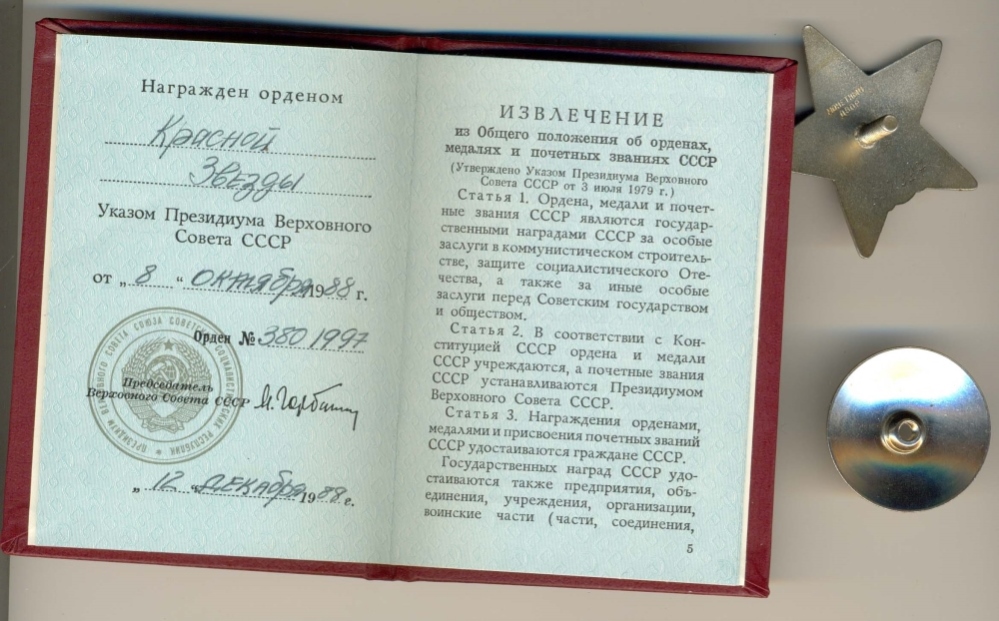 Награжден орденом
Красной
Звезды
Указом Президиума Верховного
Совета СССР
от „ 8 “ октября 1988 г.
Орден № 3801997
Председатель
Верховного Совета СССР М. Горбачев
„ 12 “ декабря 1988 г.
ПРЕЗИДИУМ ВЕРХОВНОГО СОВЕТА СОЮЗА СОВЕТСКИХ СОЦИАЛИСТИЧЕСКИХ РЕСПУБЛИК
ИЗВЛЕЧЕНИЕ
из Общего положения об орденах,
медалях и почетных званиях СССР
(Утверждено Указом Президиума Верховного
Совета СССР от 3 июля 1979 г.)
Статья 1. Ордена, медали и почет-
ные звания СССР являются государ-
ственными наградами СССР за особые
заслуги в коммунистическом строитель-
стве, защите социалистического Оте-
чества, а также за иные особые
заслуги перед Советским государством
и обществом.
Статья 2. В соответствии с Кон-
ституцией СССР ордена и медали
СССР учреждаются, а почетные звания
СССР устанавливаются Президиумом
Верховного Совета СССР.
Статья 3. Награждения орденами,
медалями и присвоения почетных званий
СССР удостаиваются граждане СССР.
Государственных наград СССР удо-
стаиваются также предприятия, объ-
единения, учреждения, организации,
воинские части (части, соединения,
5